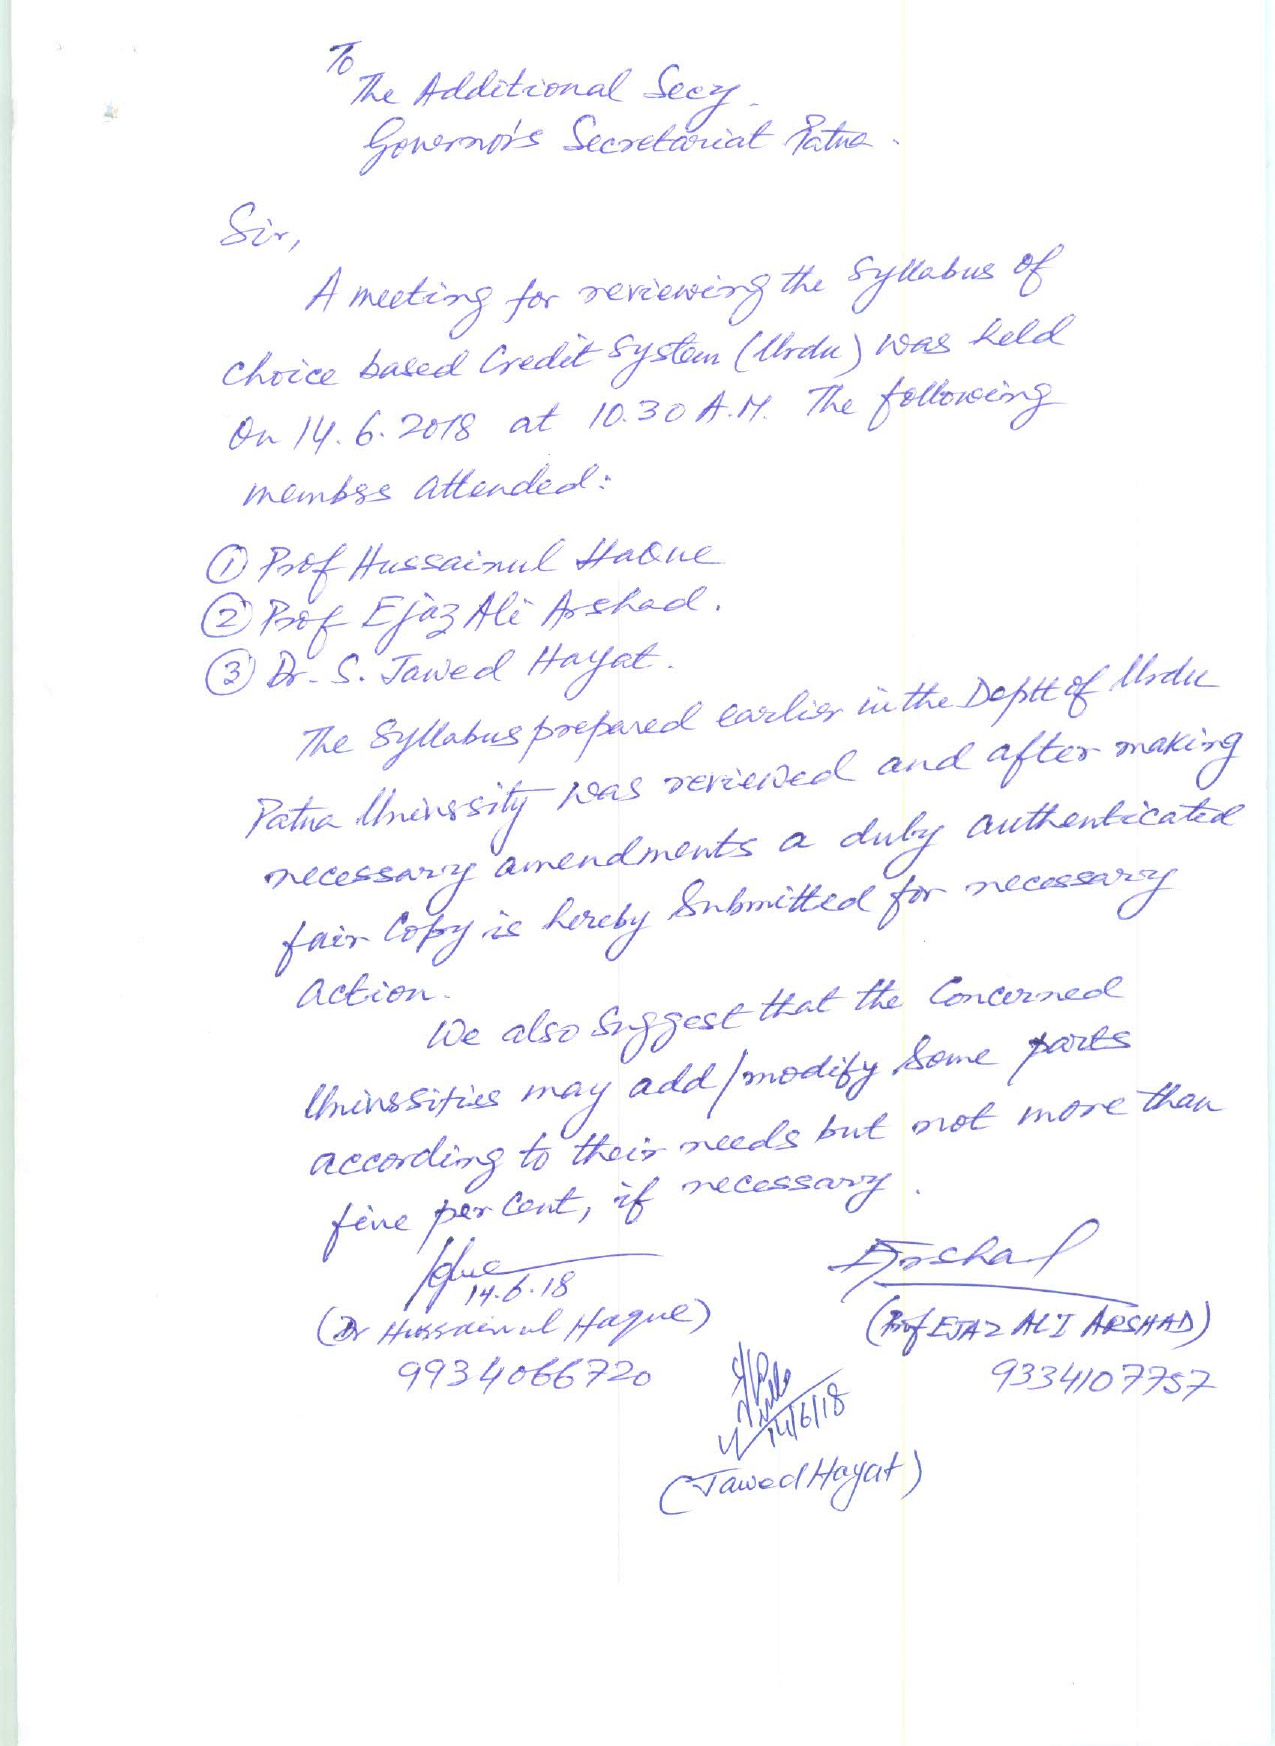 To
The Additional Secy.
Governor's Secretariat Patna.
Sir,
A meeting for reviewing the Syllabus of
Choice based Credit System (Urdu) was held
On 14.6.2018 at 10.30 A.M. The following
members attended:
① Prof Hussainul Haque
② Prof Ejaz Ali Arshad.
③ Dr. S. Jawed Hayat.
The Syllabus prepared earlier in the Deptt of Urdu
Patna University was reviewed and after making
necessary amendments a duly authenticated
fair Copy is hereby Submitted for necessary
action.
We also Suggest that the Concerned
Universities may add/modify Some parts
according to their needs but not more than
five per Cent, if necessary.
Haque Arshad
14.6.18
(Dr Hussainul Haque) (Prof EJAZ ALI ARSHAD)
9934066720 9334107757
14/6/18
(Jawed Hayat)